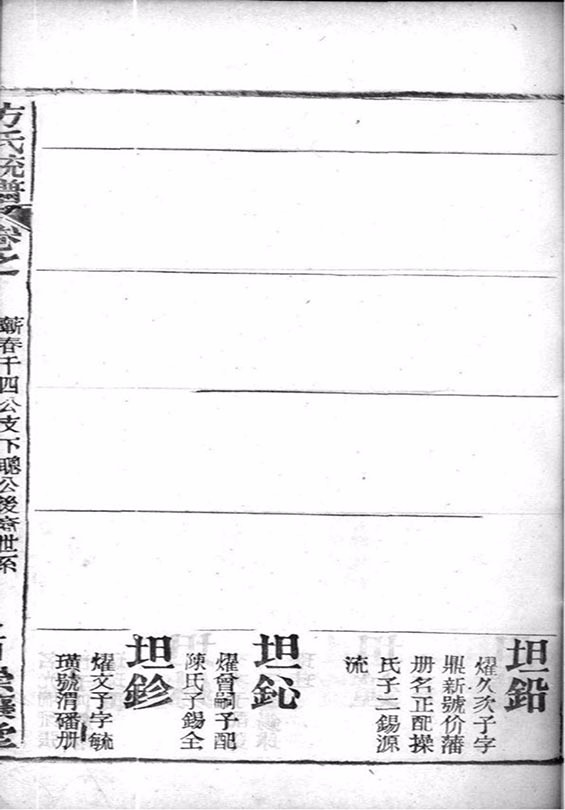 坦鉛
燿久次子字
鼎新號价藩
册名正配操
氏子二錫源
流
坦鈊
燿曾嗣子配
陳氏子錫全
坦鉁
燿文子字毓
璜號渭磻册
方氏統譜
卷之
蘄春千四公支下聰公後裔世系